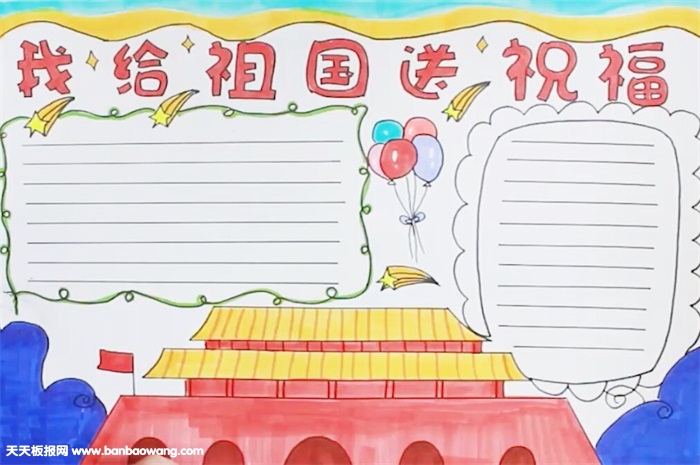 我给祖国送祝福
天天板报网 www.banbaowang.com